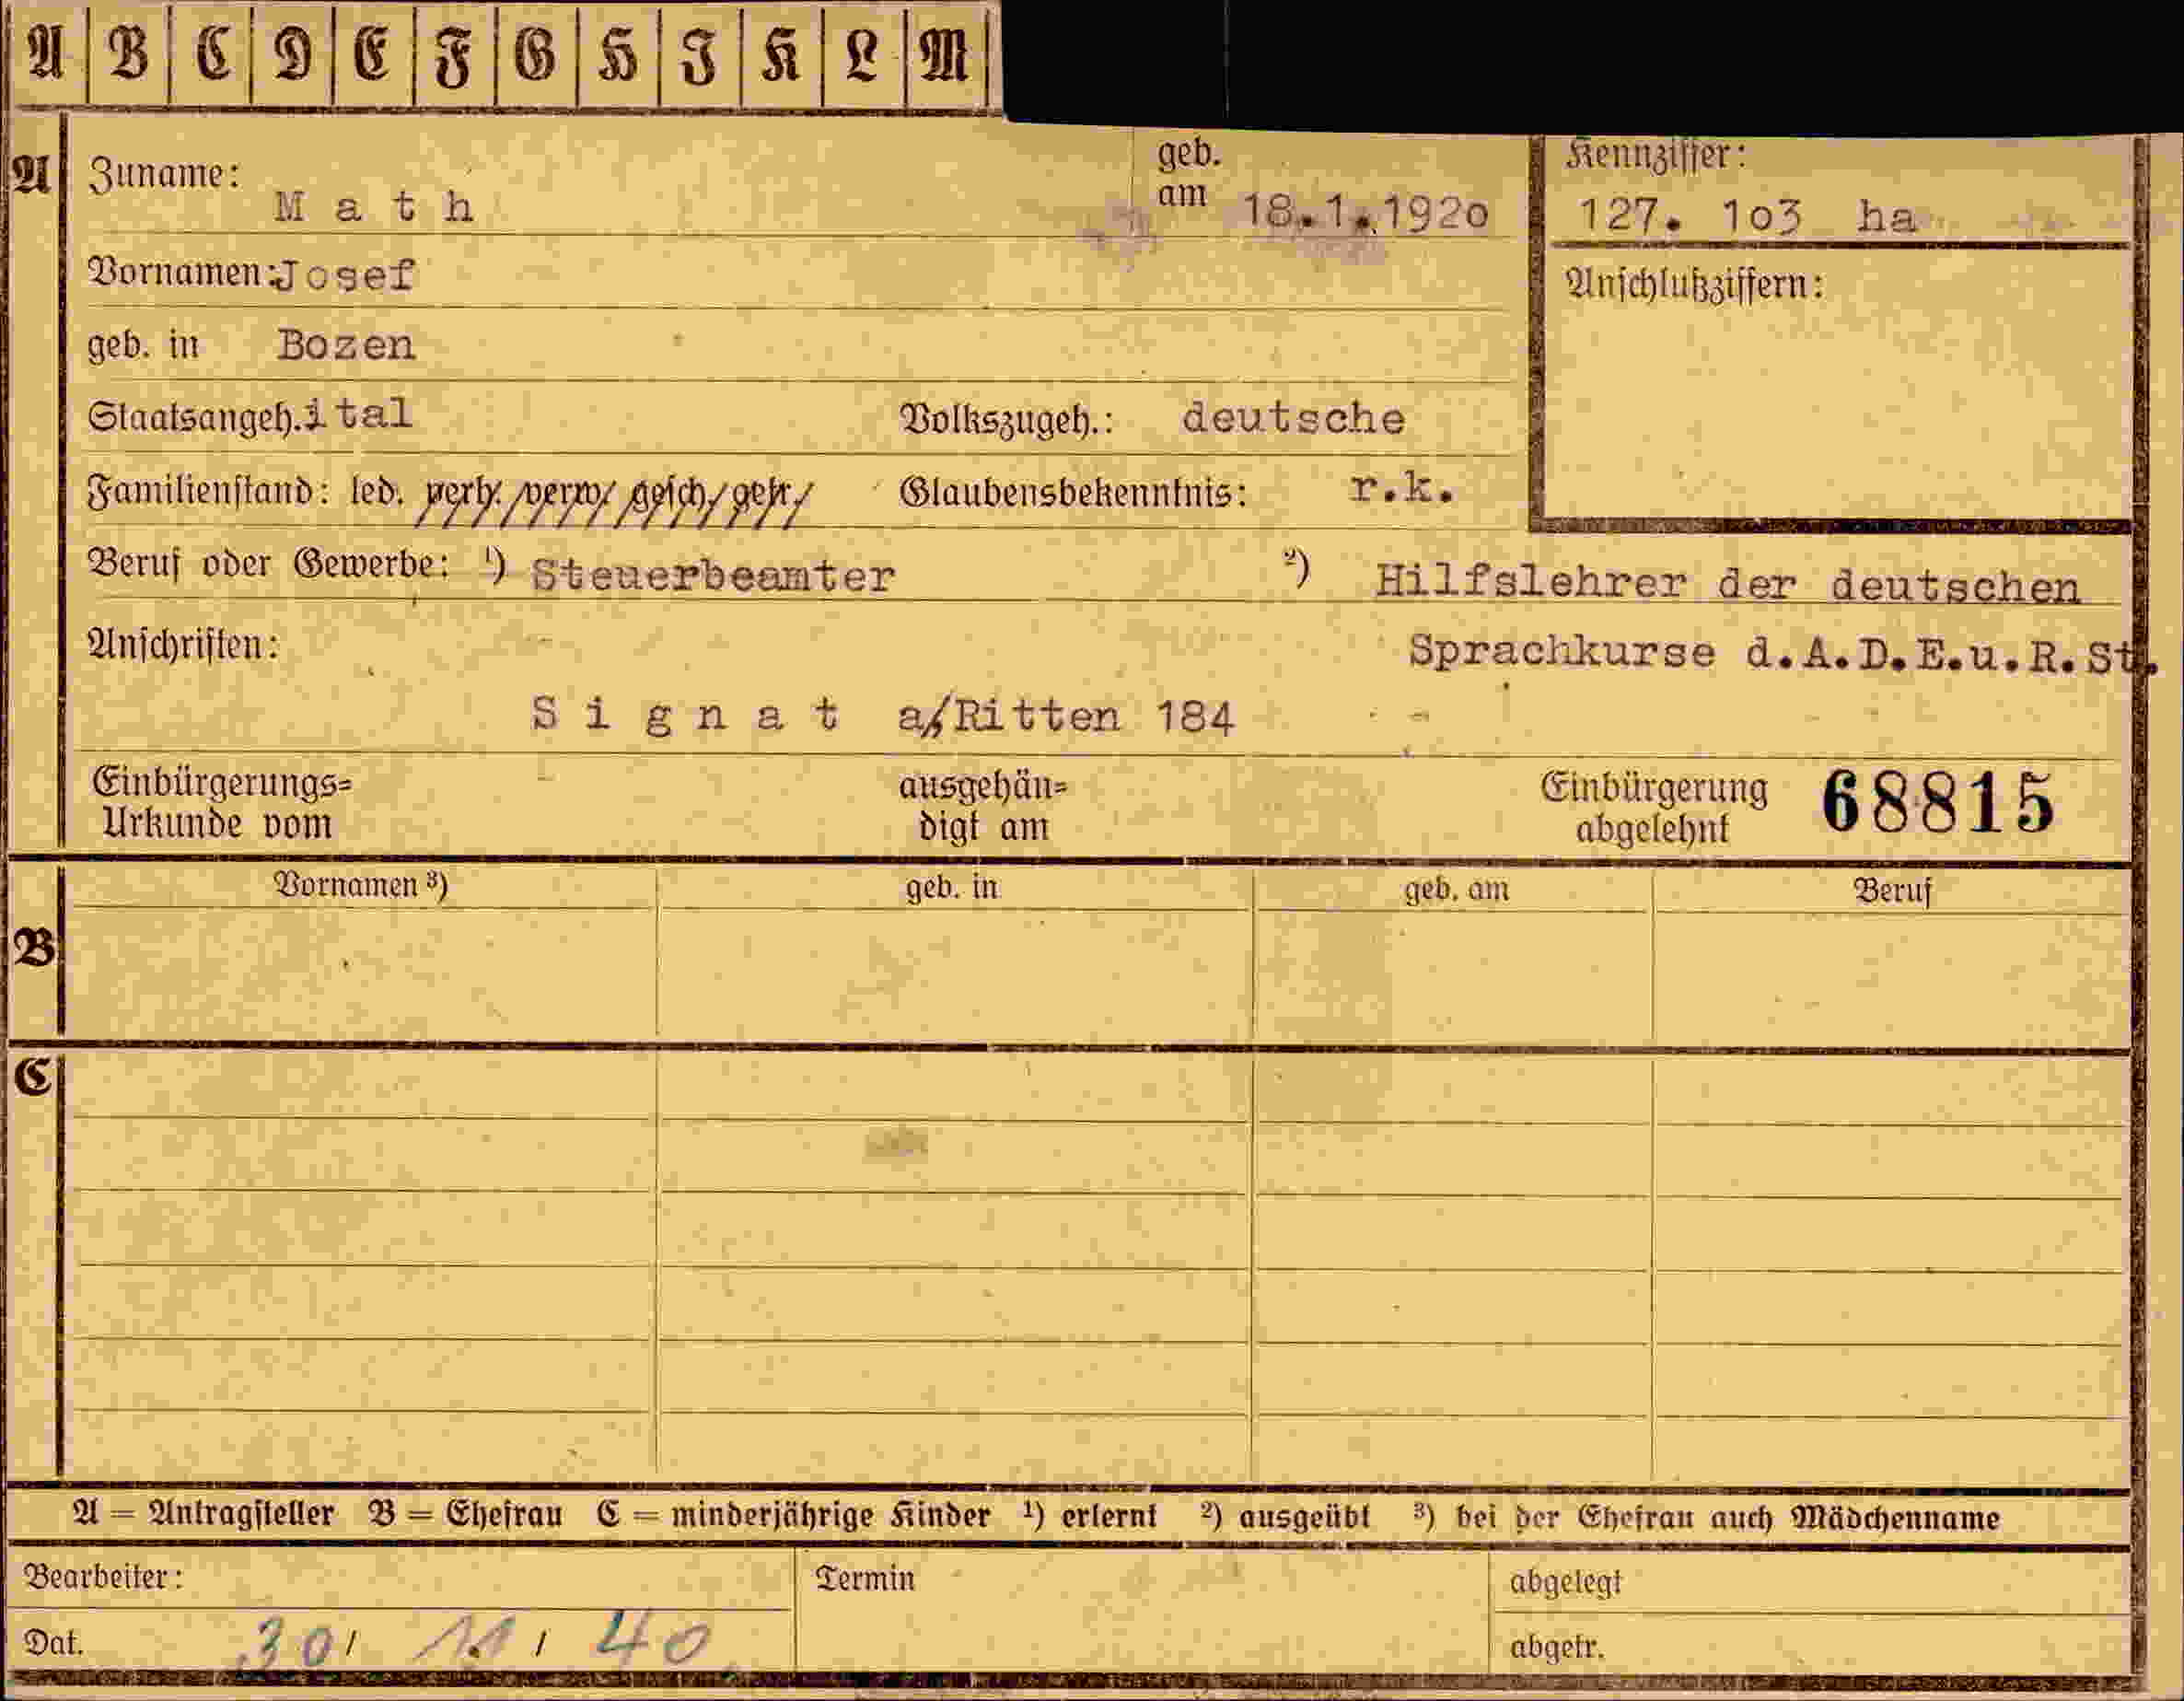 A B C D E F G H I K L M
A Zuname: Math geb. am 18.1.1920 Kennziffer: 127. 1o3 ha
Vornamen: Josef Anschlußziffern:
geb. in Bozen
Staatsangeh. ital Volkszugeh.: deutsche
Familienstand: led. verh. verw. gesch. getr. Glaubensbekenntnis: r.k.
Beruf oder Gewerbe: ¹) Steuerbeamter ²) Hilfslehrer der deutschen
Anschriften: Sprachkurse d.A.D.E.u.R.St.
Signat a/Ritten 184
Einbürgerungs= ausgehän= Einbürgerung 68815
Urkunde vom digt am abgelehnt
Vornamen ³) geb. in geb. am Beruf
B
C
A = Antragsteller B = Ehefrau C = minderjährige Kinder ¹) erlernt ²) ausgeübt ³) bei der Ehefrau auch Mädchenname
Bearbeiter: Termin abgelegt
Dat. 30/ 11/ 40 abgetr.